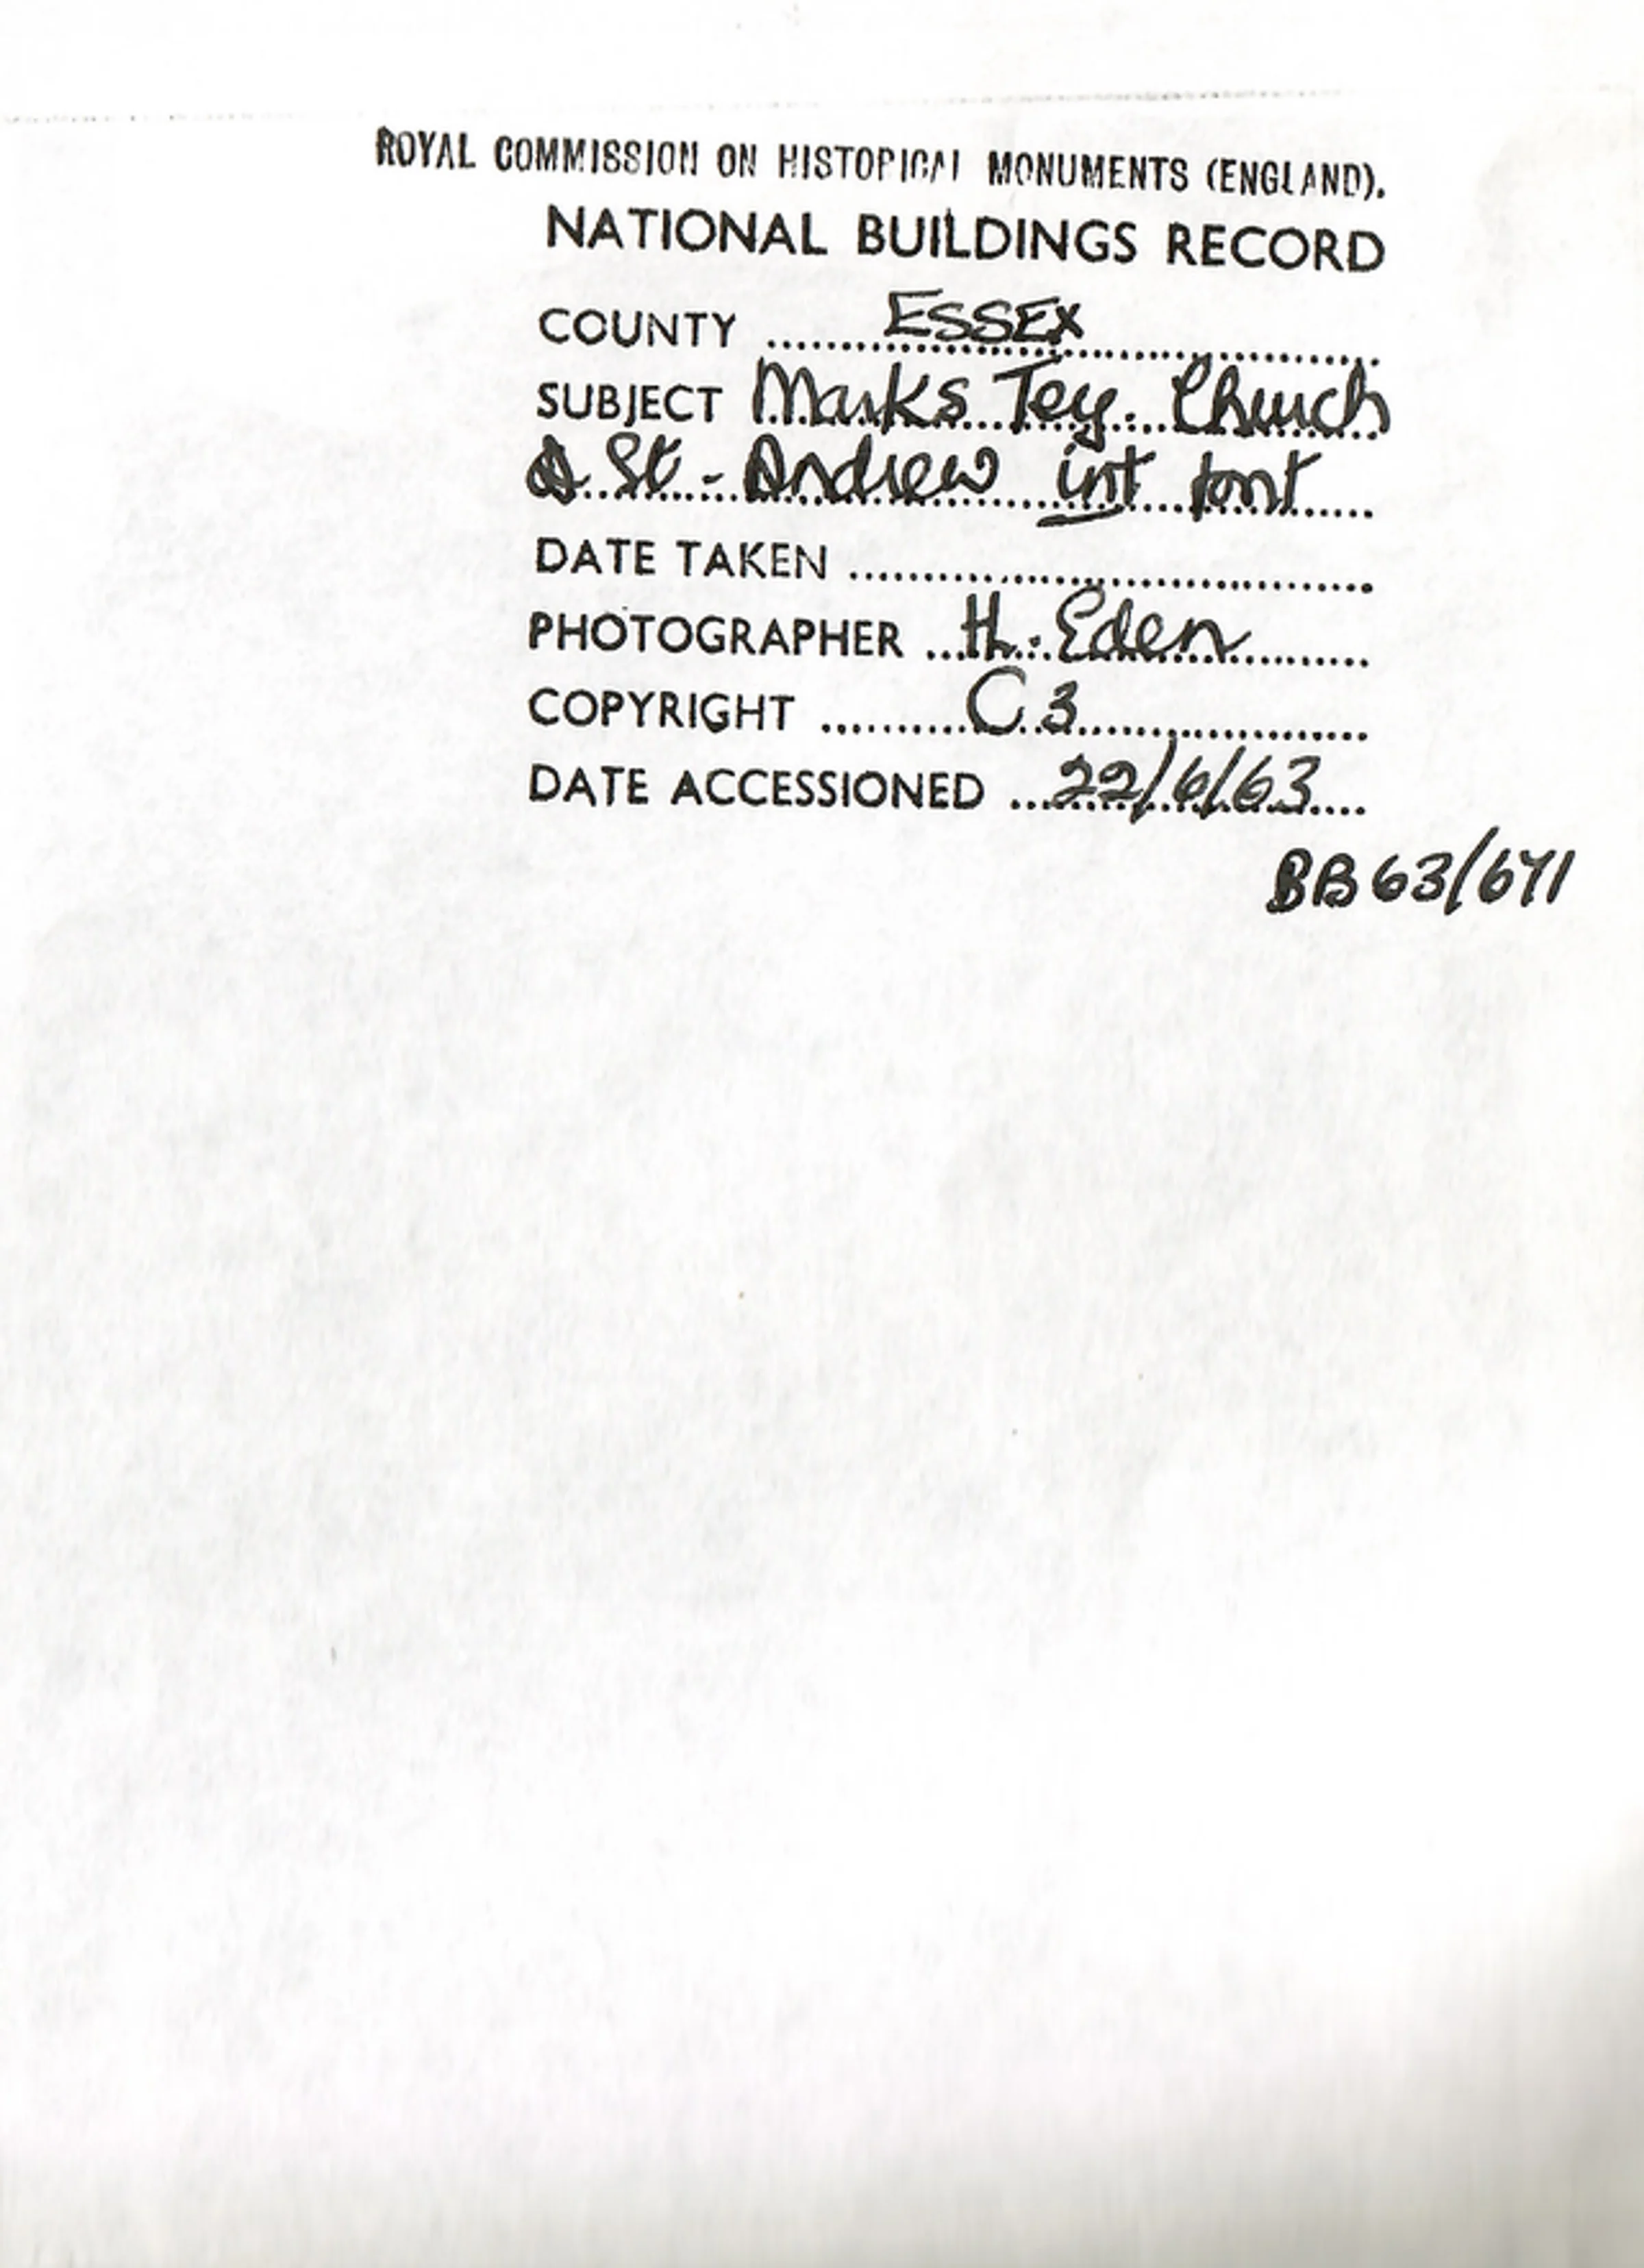 ROYAL COMMISSION ON HISTORICAL MONUMENTS (ENGLAND).
NATIONAL BUILDINGS RECORD
COUNTY ESSEX
SUBJECT Marks Tey. Church
St - Andrew int font
DATE TAKEN
PHOTOGRAPHER H. Eden
COPYRIGHT C3
DATE ACCESSIONED 22/6/63